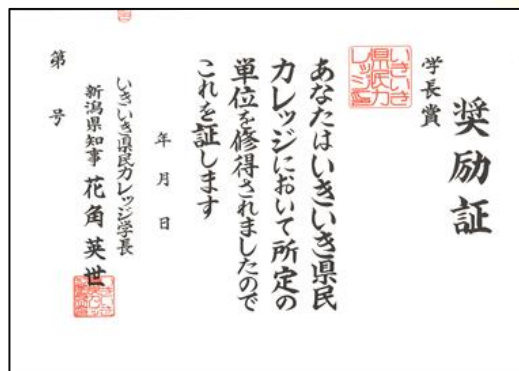 奨励証
学長賞
いきいき
県民カ
レッジ
あなたはいきいき県民
カレッジにおいて所定の
単位を修得されましたので
これを証します
年　月　日
いきいき県民カレッジ学長
新潟県知事　花角英世
第　号